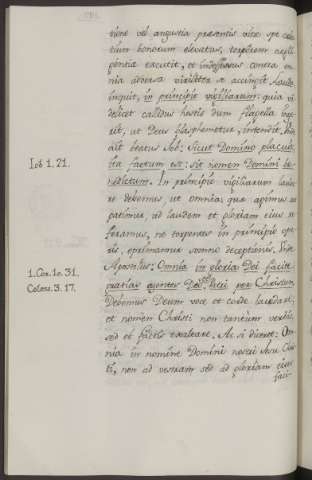 tione vel angustia præsentis vitæ spe cœles-
tium bonorum elevatus, torporem negli-
gentia excutit, et indefessus contra om-
nia adversa vigilter se accingit. Anulla
inquit, in principio vigiliarum quia vi-
delicet callidus hostis dum flagella inge-
rit, ut Deus blasphemetur, intendit.
ait beatus Iob: Sicut Domino placuit
ita factum est: sit nomen Domini be-
Iob 1. 21.
nedictum. In principio vigiliarum lauda-
re debemus, ut omnia quæ agimus et
patimur, ad laudem et gloriam eius re-
feramus, ne torpentes in principio ope-
ris, opprimamur somno deceptionis.
1. Cor. 10. 31.
Apostolus: Omnia in gloria Dei facite
Coloss. 3. 17.
gratias agentes Deo Patri per Christum.
Debemus Deum voce et corde laudare,
et nomen Christi non tantum verbis,
sed et factis exaltare. Ac si diceret: Om-
nia in nomine Domini nostri Iesu Chris-
ti, non ad vestram sed ad gloriam eius
faci-